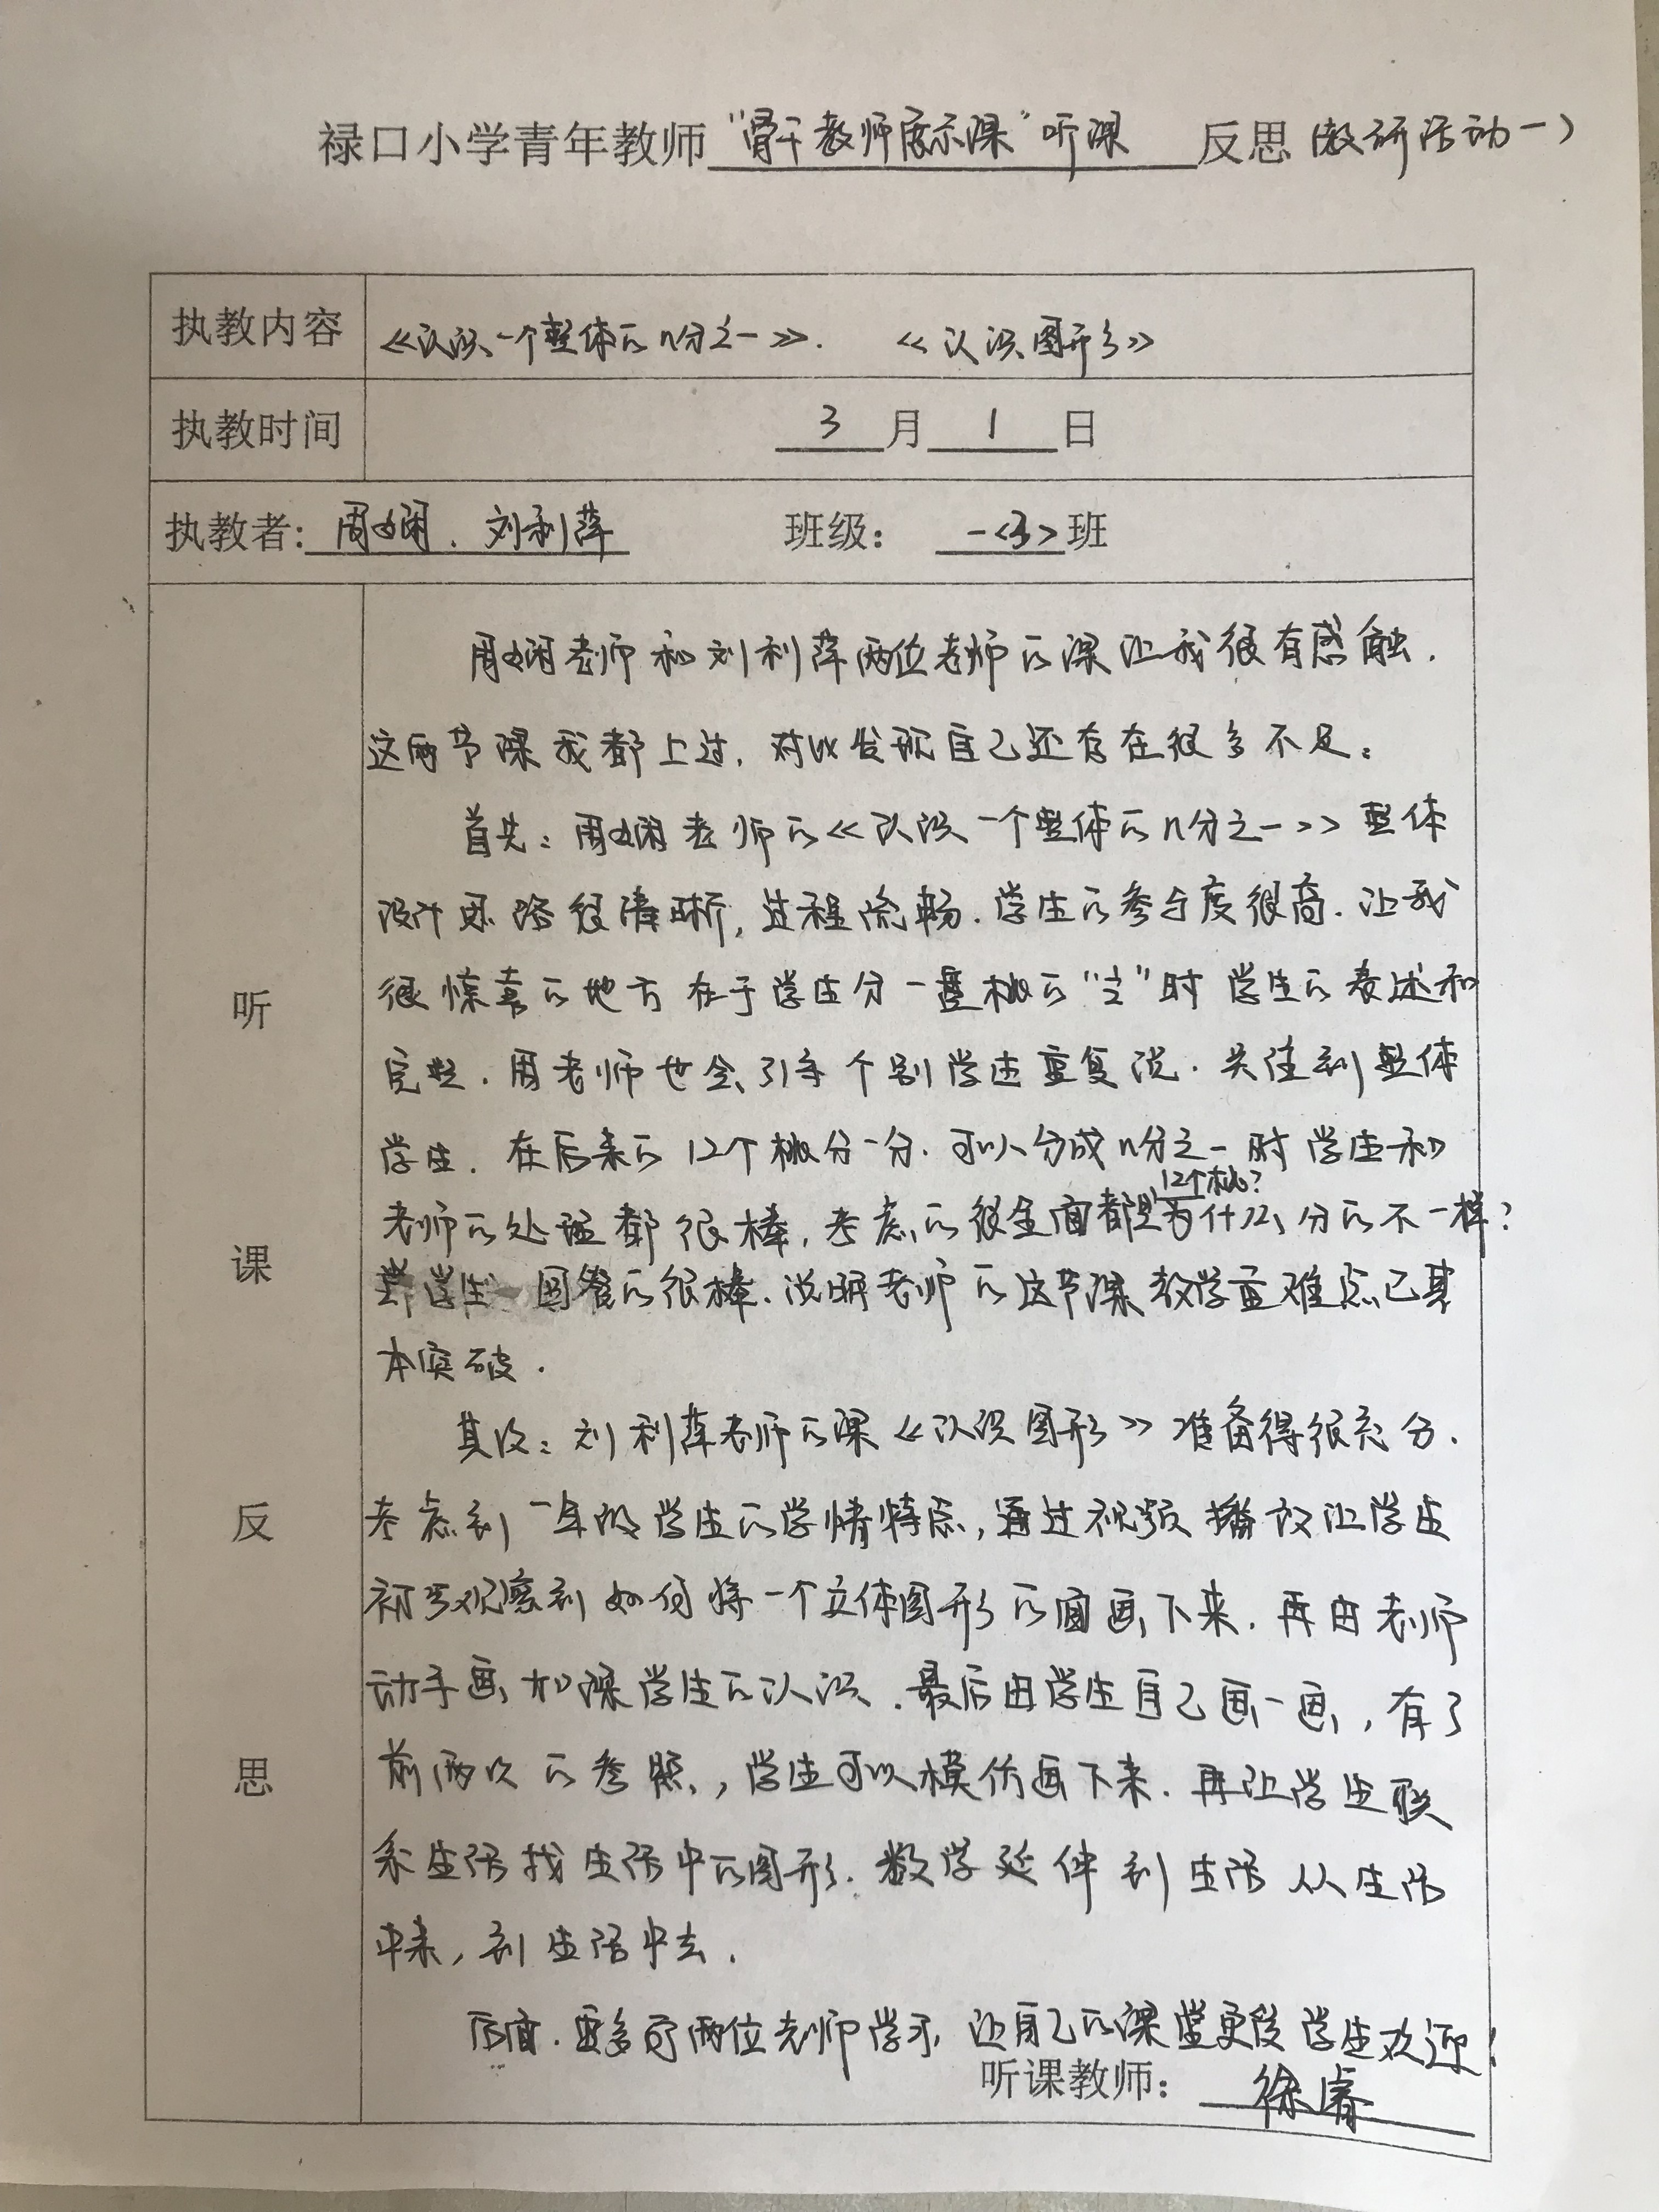 禄口小学青年教师“骨干教师展示课”听课 反思(教研活动一)
执教内容 《认识一个整体的n分之一》. 《认识图形》
执教时间 3月1日
执教者: 周娴. 刘利萍 班级: 一<3>班
听课反思
周娴老师和刘利萍两位老师的课让我很有感触.
这两节课我都上过, 对比发现自己还存在很多不足:
首先: 周娴老师的《认识一个整体的n分之一》整体
设计思路很清晰, 过程流畅. 学生的参与度很高. 让我
很惊喜的地方在于学生分一盘桃的“½”时 学生的表述和
完整. 周老师也会引导个别学生重复说. 关注到整体
学生. 在后来的12个桃分一分. 可以分成n分之一时 学生和
老师的处理都很棒, 考虑的很全面都是12个桃? 为什么分的不一样?
学生 回答的很棒. 说明老师的这节课教学重难点已基
本突破.
其次: 刘利萍老师的课《认识图形》准备得很充分.
考虑到一年级学生的学情特点, 通过视频播放让学生
初步观察到如何将一个立体图形的面画下来. 再由老师
动手画加深学生的认识. 最后由学生自己画一画, 有了
前两次的参照, 学生可以模仿画下来. 再让学生联
系生活找生活中的图形. 数学延伸到生活 从生活
中来, 到生活中去.
后面. 要多向两位老师学习, 让自己的课堂更受学生欢迎!
听课教师: 徐睿